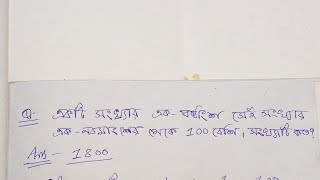 Q- একটি সংখ্যার এক-ষষ্ঠাংশ সেই সংখ্যার
এক-নবমাংশের থেকে 100 বেশি, সংখ্যাটি কত?
Ans - 1800